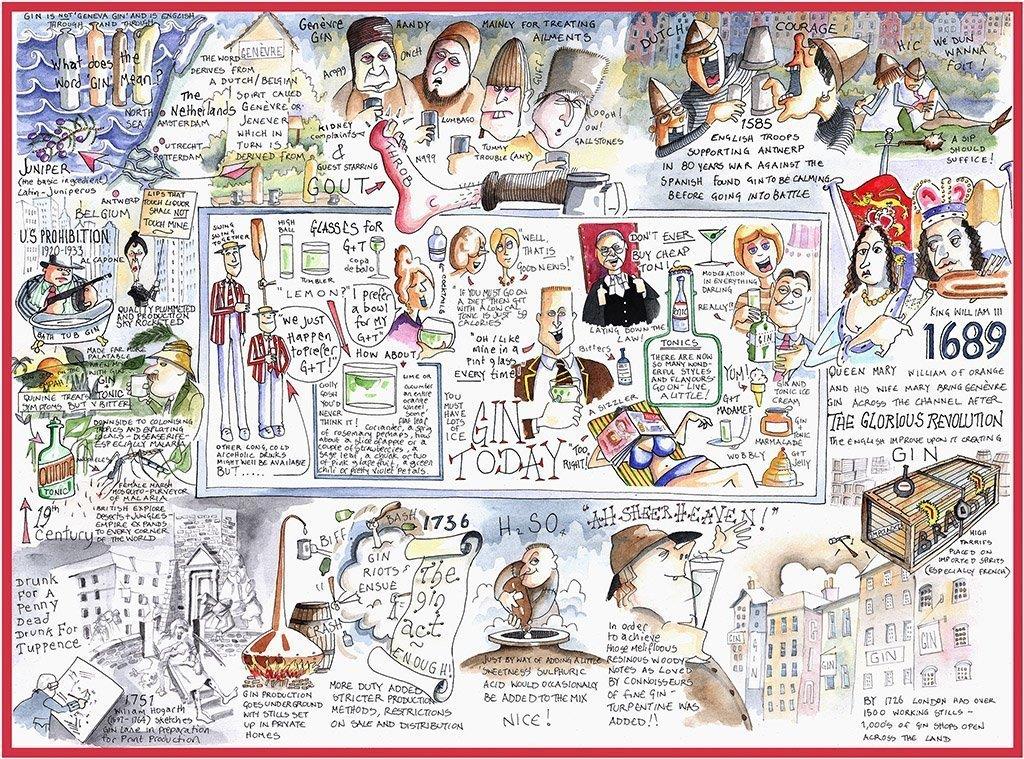 GIN IS NOT 'GENEVA GIN' AND IS ENGLISH
THROUGH AND THROUGH
What does the
Word 'GIN' Mean?
NORTH
SEA
The
Netherlands
AMSTERDAM
UTRECHT
ROTTERDAM
JUNIPER
(the basic ingredient)
Latin - Juniperus
ANTWERP
BELGIUM
GENÈVRE
THE WORD
DERIVES FROM
A DUTCH/BELGIAN
SPIRIT CALLED
GENÈVRE OR
JENEVER
WHICH IN
TURN IS
DERIVED FROM
Genèvre
Gin
HANDY
MAINLY FOR TREATING
AILMENTS
OUCH
LUMBAGO
KIDNEY
complaints
TUMMY
TROUBLE (ANY)
OOOH!
OW!
GALLSTONES
&
GUEST STARRING
GOUT
THROB
DUTCH
COURAGE
1585
ENGLISH TROOPS
SUPPORTING ANTWERP
IN 80 YEARS WAR AGAINST THE
SPANISH FOUND GIN TO BE CALMING
BEFORE GOING INTO BATTLE
HIC
WE DUN
WANNA
FOIT!
A SIP
SHOULD
SUFFICE!
KING WILLIAM III
1689
QUEEN MARY
WILLIAM OF ORANGE
AND HIS WIFE MARY BRING GENÈVRE
GIN ACROSS THE CHANNEL AFTER
THE GLORIOUS REVOLUTION
THE ENGLISH IMPROVE UPON IT CREATING
GIN
HIGH
TARIFFS
PLACED ON
IMPORTED SPIRITS
(ESPECIALLY FRENCH)
GIN
GIN
GIN
GIN
BY 1726 LONDON HAD OVER
1500 WORKING STILLS -
1,000's OF GIN SHOPS OPEN
ACROSS THE LAND
"AH SHEER HEAVEN!"
In order
to achieve
those mellifluous
RESINOUS WOODY
NOTES AS LOVED
BY CONNOISSEURS
OF FINE GIN -
TURPENTINE WAS
ADDED!!
H2SO4
JUST BY WAY OF ADDING A LITTLE
SWEETNESS SULPHURIC
ACID WOULD OCCASIONALLY
BE ADDED TO THE MIX
NICE!
1736
BASH
BIFF
CRASH
GIN
RIOTS
ENSUE
The
gin
act
ENOUGH!
MORE DUTY ADDED
STRICTER PRODUCTION
METHODS, RESTRICTIONS
ON SALE AND DISTRIBUTION
GIN PRODUCTION
GOES UNDERGROUND
WITH STILLS SET
UP IN PRIVATE
HOMES
DRUNK
FOR A
PENNY
DEAD
DRUNK FOR
TUPPENCE
1751
William Hogarth
(1697-1764) sketches
Gin Lane in preparation
for Print Production
19th
century
BRITISH EXPLORE
DESERTS + JUNGLES -
EMPIRE EXPANDS
TO EVERY CORNER
OF THE WORLD
FEMALE MARSH
MOSQUITO - PURVEYOR
OF MALARIA
DOWNSIDE TO COLONISING
TROPICS
LOCALS - DISEASE RIFE -
ESPECIALLY MALARIA
QUININE
TONIC
QUININE TREATS
SYMPTOMS BUT V BITTER
MADE FAR MORE
PALATABLE
GIN
TONIC
U.S PROHIBITION
1920-1933
AL CAPONE
BATH TUB GIN
LIPS THAT
TOUCH LIQUOR
SHALL NOT
TOUCH MINE
QUALITY PLUMMETED
AND PRODUCTION
SKY ROCKETED
SWING
SWING
TOGETHER
HIGH
BALL
GLASSES FOR
G+T
TUMBLER
copa
de balo
COCKTAILS
"LEMON?"
"We JUST
Happen
to prefer
G+T!"
I prefer
a bowl
for my
G+T"
HOW ABOUT
OTHER LONG, COLD
ALCOHOLIC DRINKS
MIGHT WELL BE AVAILABLE
BUT.....
GOLLY
GOSH
YOU'D
NEVER
THINK IT!
LIME OR
cucumber
an entire
orange
wheel,
some
coriander, a sprig
of rosemary perhaps, how
about a slice of apple or a
couple of strawberries, a
sage leaf, a chunk or two
of pink grapefruit, a green
chilli or pretty violet petals.
YOU
MUST
HAVE
LOTS
OF ICE
"WELL,
THAT IS
GOOD NEWS!"
"IF YOU MUST GO ON
A DIET THEN G+T
WITH A LOW CAL
TONIC IS JUST 59
CALORIES"
"OH I LIKE
MINE IN A
PINT GLASS
EVERY time"
GIN
TODAY
Bitters
DON'T EVER
BUY CHEAP
TONIC!
LAYING DOWN THE
LAW!
TONIC
TONICS
THERE ARE NOW
SO MANY WOND-
ERFUL STYLES
AND FLAVOURS
GO ON - LIVE
A LITTLE!
A SIZZLER
"TOO
RIGHT!"
MODERATION
IN EVERYTHING
DARLING
REALLY!!
GIN
YUM!
GIN AND
TONIC ICE
CREAM
G+T
MADAME?
GIN
TONIC
MARMALADE
WOBBLY
G+T
Jelly